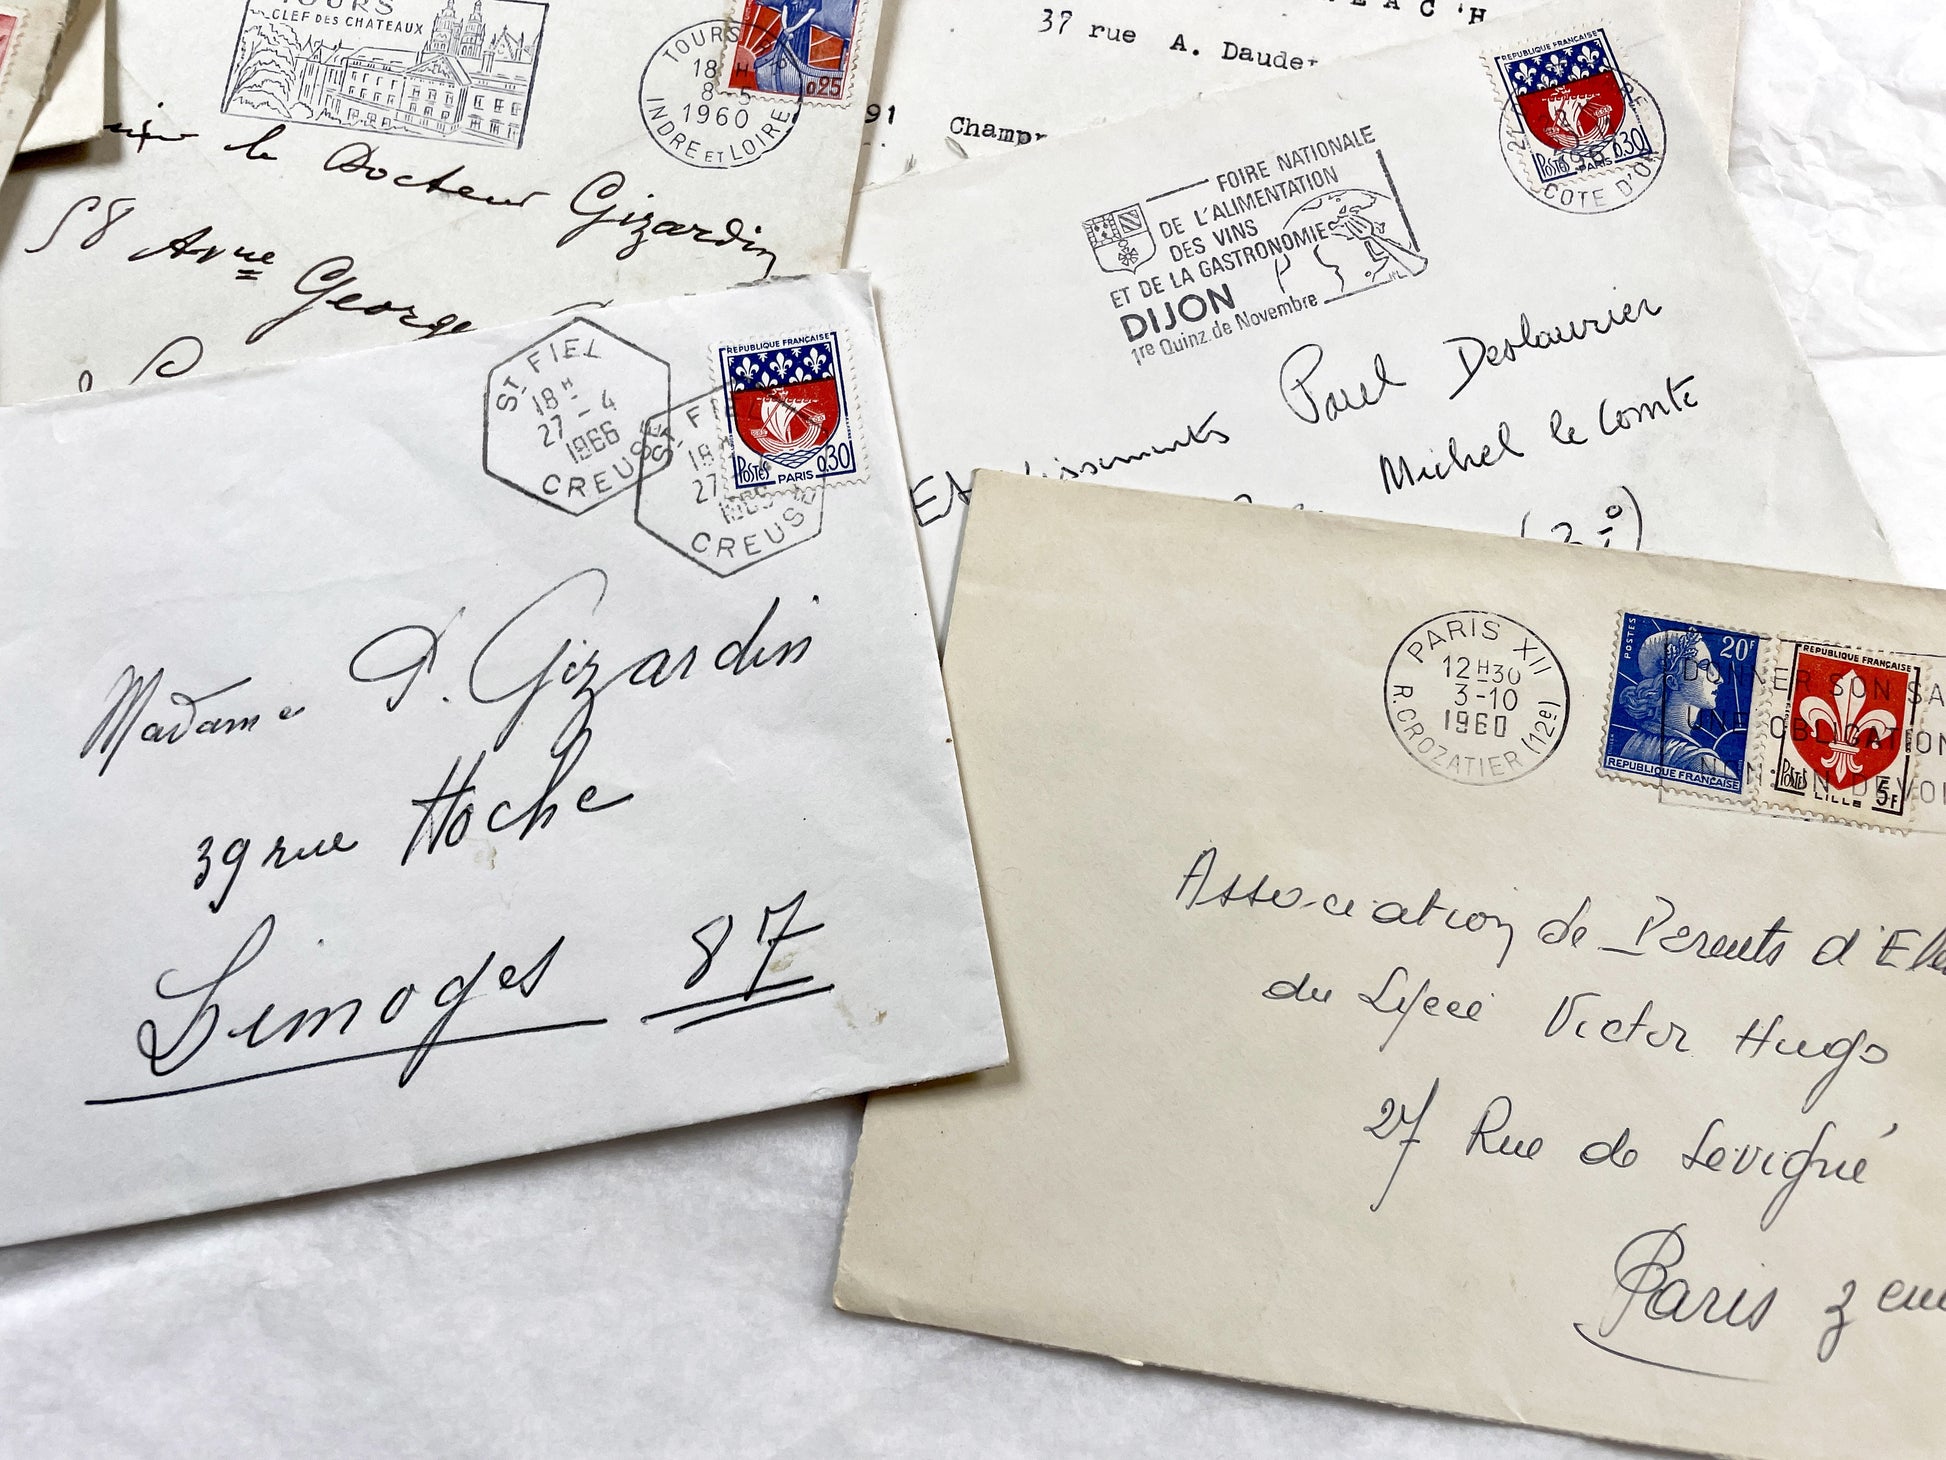 TOURS
CLEF DES CHATEAUX
TOURS
18 H
8-5
1960
INDRE ET LOIRE
0,25
le Docteur Gizardin
58 Avnue George
37 rue A. Daudet
91 Champ
FOIRE NATIONALE
DE L'ALIMENTATION
DES VINS
ET DE LA GASTRONOMIE
DIJON
1re Quinz. de Novembre
REPUBLIQUE FRANÇAISE
POSTES PARIS 0,30
COTE D'O
Paul Deslaurier
Michel le Comte
ST FIEL
18 H
27-4
1966
CREUSE
ST FIEL
18 H
27
1966
CREUSE
REPUBLIQUE FRANÇAISE
POSTES PARIS 0,30
Madame P. Gizardin
39 rue Hoche
Limoges 87
PARIS XII
12 H30
3-10
1960
R. CROZATIER (12e)
POSTES 20F
REPUBLIQUE FRANÇAISE
REPUBLIQUE FRANÇAISE
POSTES LILLE 5F
DONNER SON SA
UNE OBLIGATION
N DEVOI
Association de Parents d'Ele
du Lycée Victor Hugo
27 Rue de Sevigné
Paris 3 em